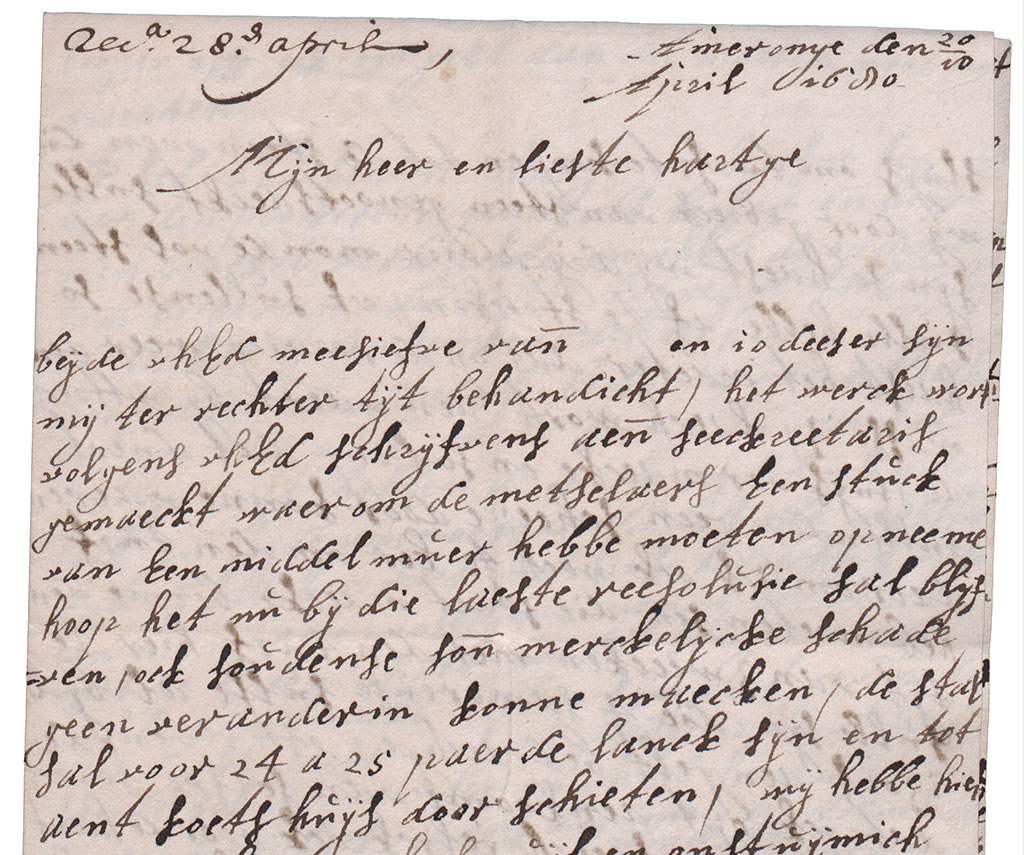 Reca. 28.d april,
Ameronge den 20/10
April 1680
Mijn heer en liefste hartge
beijde uhEd meesiefve van̄ en 10 deeser sijn
mij ter rechter tijt behandicht, het werck wort
volgens uhEd schrijfvens aen̄ seeckreetaris
gemaeckt waer om de metselaers Een stuck
van Een middel muer hebbe moeten op neeme
hoop het nu bij die laeste reesolusie sal blijf-
=ven, ock soudense son̄ merckelijcke schade
geen veranderin konne maecken, de stal
sal voor 24 a 25 paerde lanck sijn en tot
aent koets huijs door schieten, wij hebbe hier
en onstuijmich